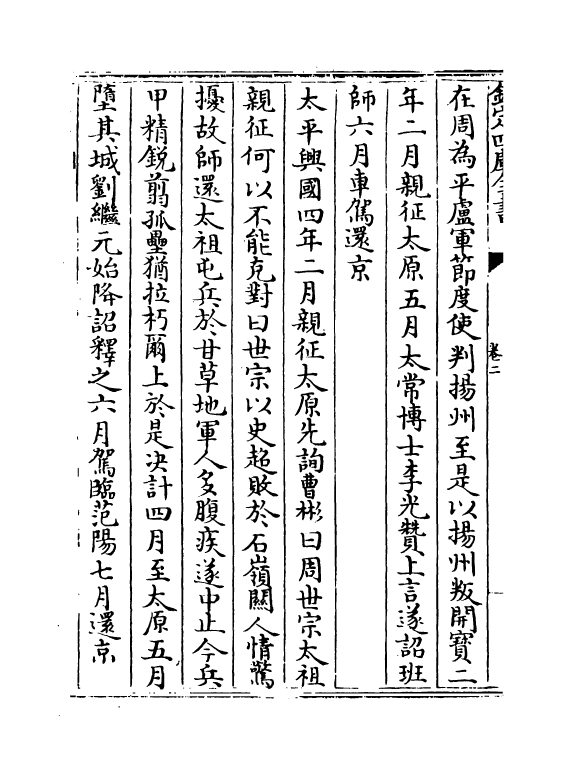 欽定四庫全書
卷二
在周為平盧軍節度使判揚州至是以揚州叛開寶二
年二月親征太原五月太常博士李光贊上言遂詔班
師六月車駕還京
太平興國四年二月親征太原先詢曹彬曰周世宗太祖
親征何以不能克對曰世宗以史超敗於石嶺關人情驚
擾故師還太祖屯兵於甘草地軍人多腹疾遂中止今兵
甲精銳翦孤壘猶拉朽爾上於是决計四月至太原五月
墮其城劉繼元始降詔釋之六月駕臨范陽七月還京